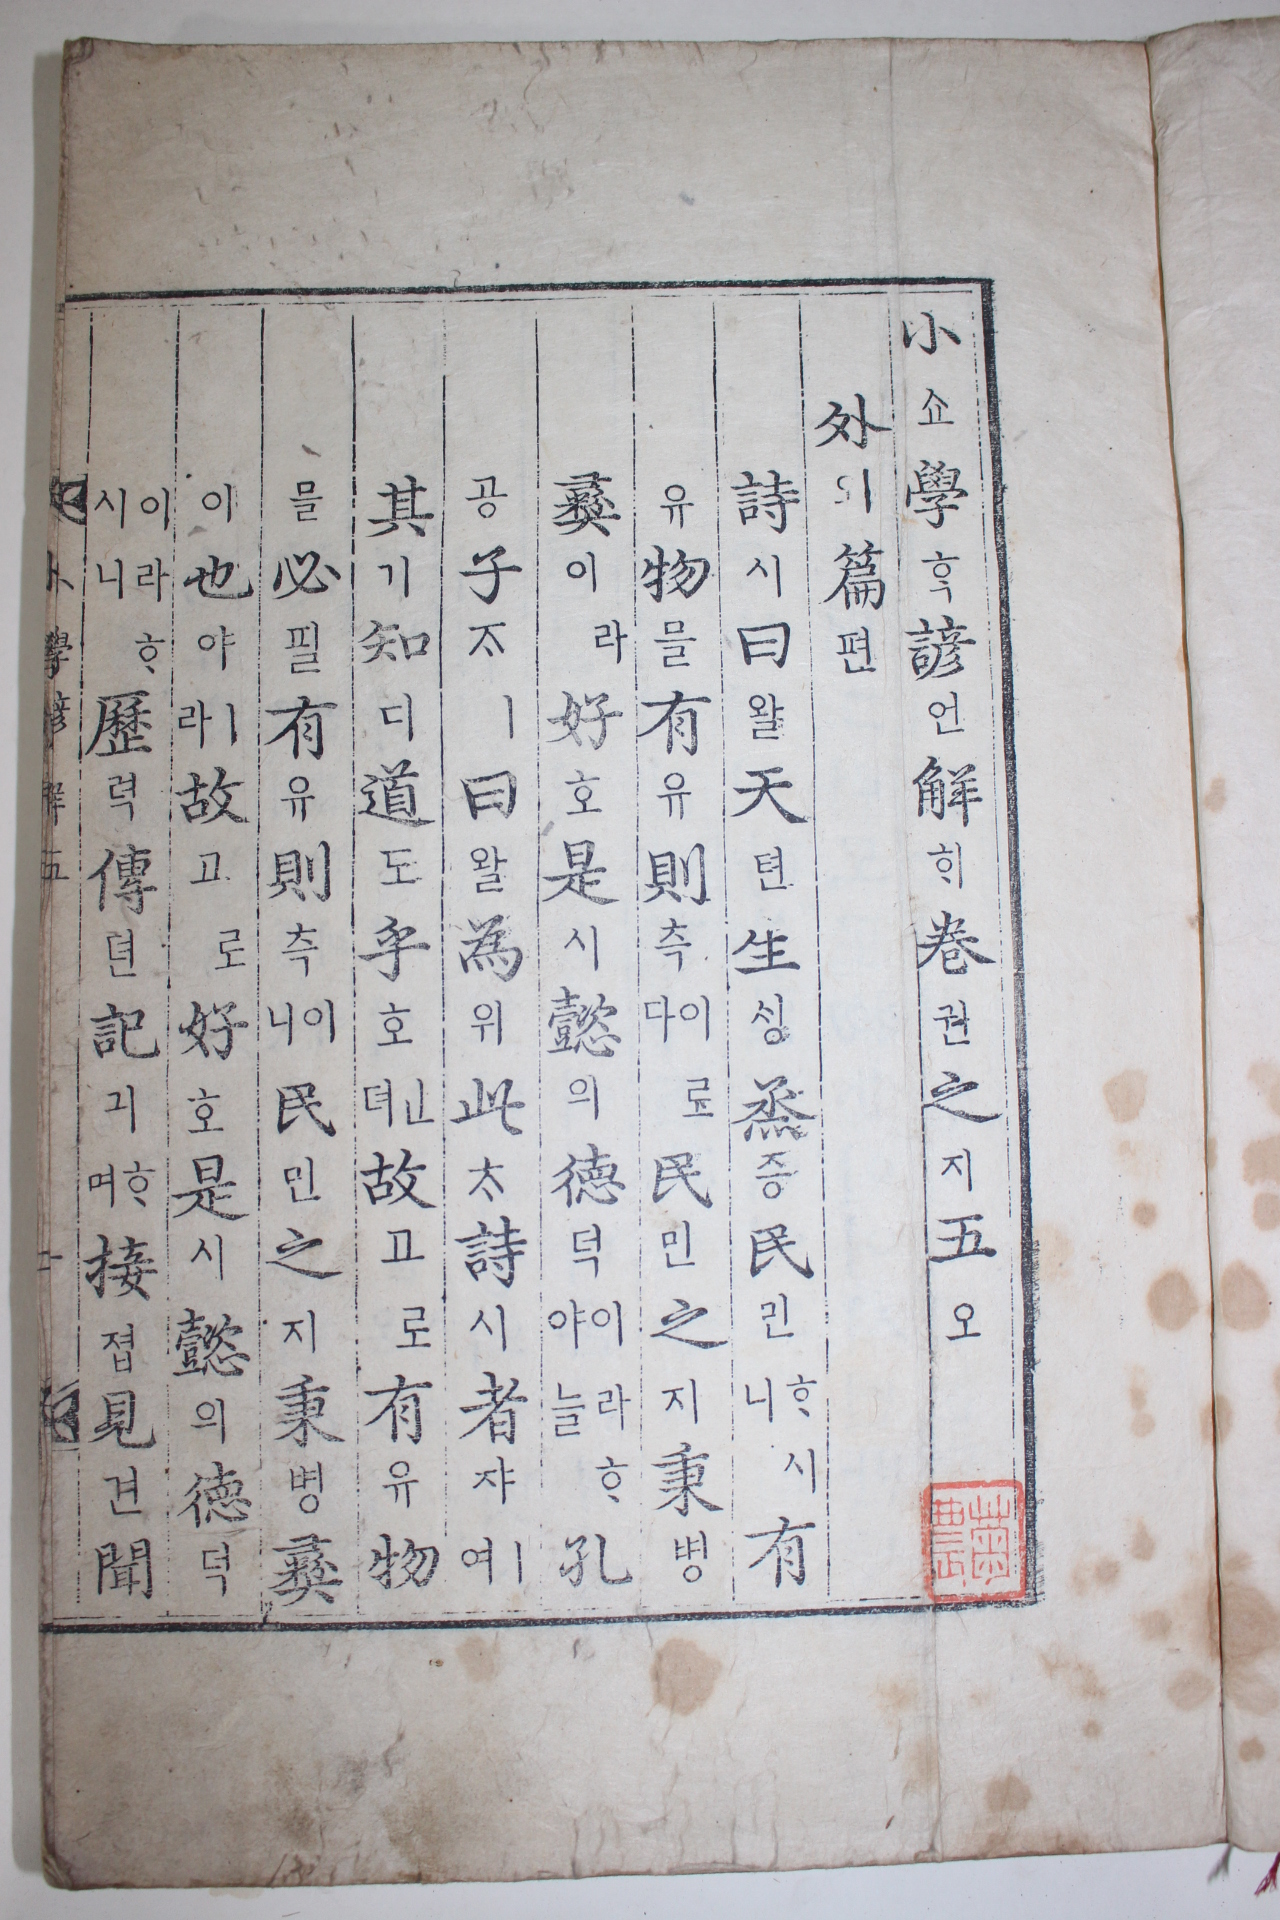 小쇼學ᄒᆞᆨ諺언解ᄒᆡ卷권之지五오
外외篇편
詩시曰왈天텬生ᄉᆡᆼ烝증民민ᄒᆞ시니有
유物믈有유則측이로다民민之지秉병
彛이라好호是시懿의德덕이라ᄒᆞ야늘孔
공子ᄌᆞㅣ曰왈為위此ᄎᆞ詩시者쟈ㅣ여
其기知디道도乎호ᅟᅵᆫ뎌故고로有유物
믈必필有유則측이니民민之지秉병彛
이也야ㅣ라故고로好호是시懿의德덕
이라ᄒᆞ시니歷력傳뎐記긔ᄒᆞ며接졉見견聞
小學諺解五 一